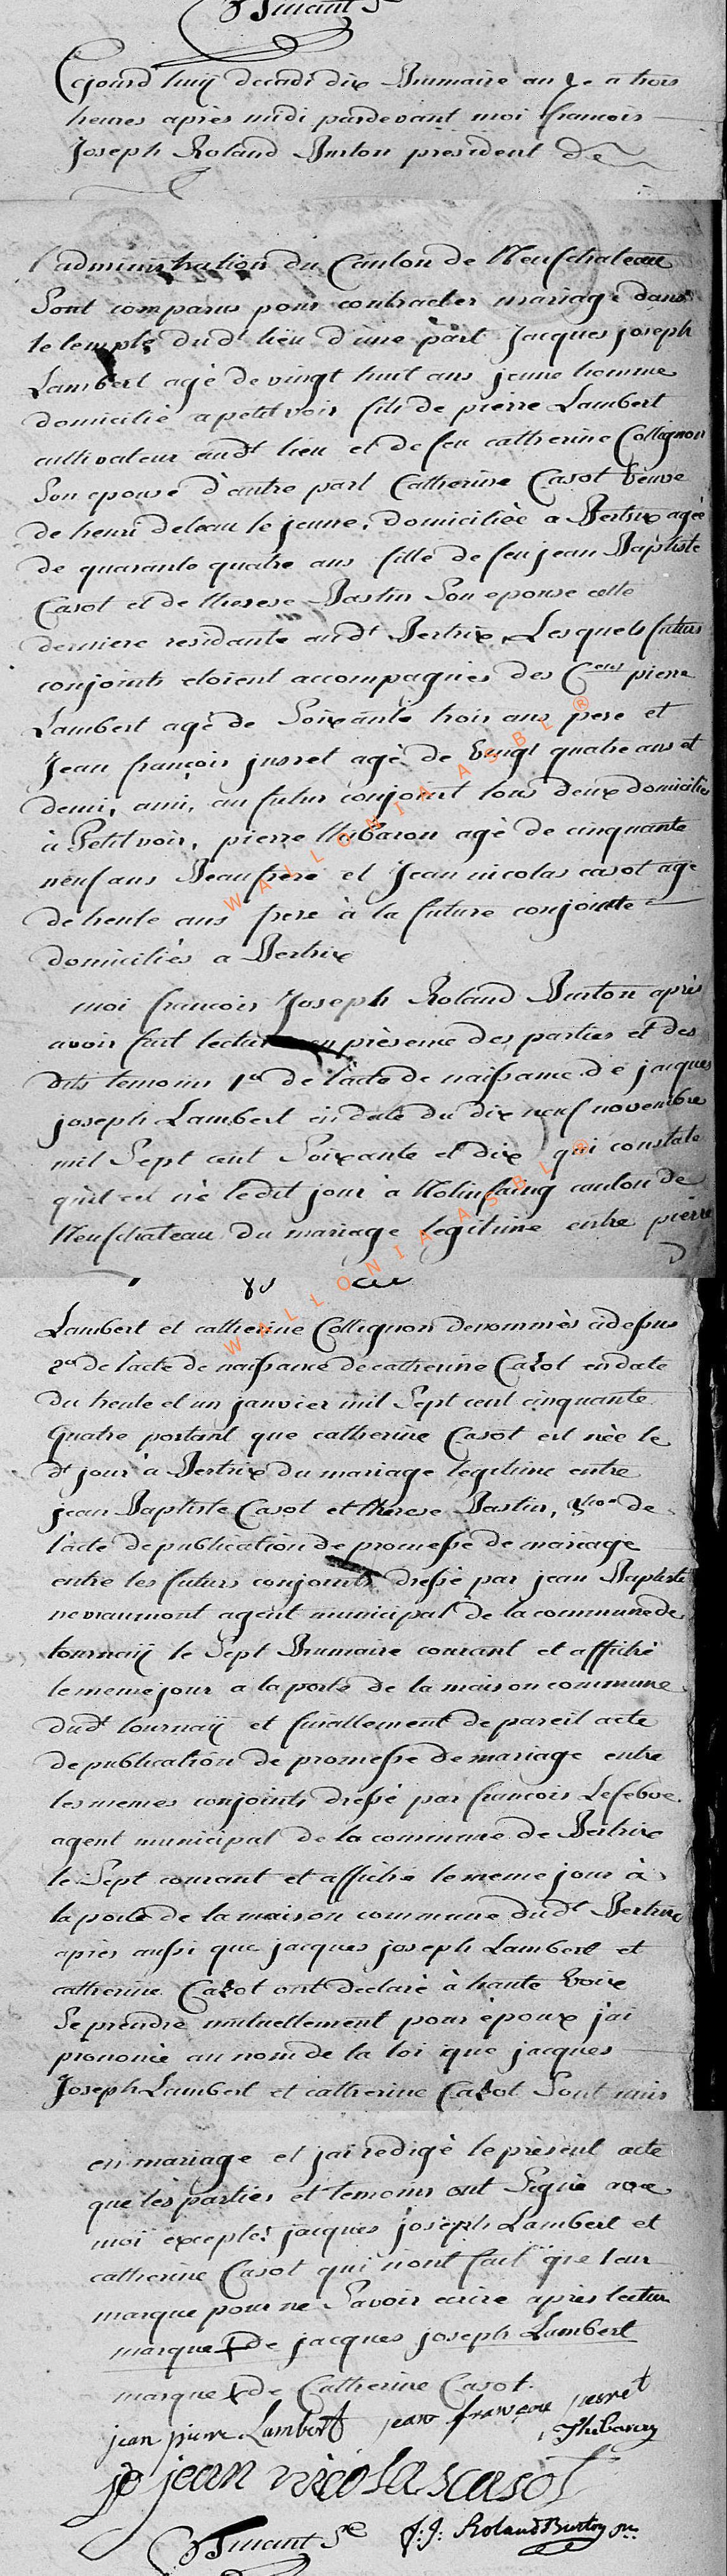 Cejourd'huÿ decadi dix Brumaire an 7e a trois
heures après midi pardevant moi francois
Joseph Roland Burton president de
l'administration du Canton de Neufchateau
Sont comparus pour contracter mariage dans
le temple dudt lieu d'une part Jacques joseph
Lambert agé de vingt huit ans jeune homme
domicilié a petitvoir fils de pierre Lambert
cultivateur audt lieu et de feu catherine Collignon
Son epouse d'autre part Catherine Casot veuve
de henri deleau le jeune, domiciliée a Bertrix agée
de quarante quatre ans fille de feu jean Baptiste
Casot et de therese Bastin Son epouse cette
derniere residante audt Bertrix, Lesquels futurs
conjoints etoient accompagnies des Cens pierre
Lambert agé de Soixante trois ans pere et
Jean françois jusret agé de vingt quatre ans et
demi, ami, au futur conjoint tous deux domiciliés
à Petitvoir, pierre thibaron agé de cinquante
neuf ans Beaufrere et Jean nicolas casot agé
de trente ans frere à la future conjointe
domiciliés a Bertrix
moi francois Joseph Roland Burton après
avoir fait lecture en présence des parties et des
dits temoins 1er de l'acte de naissance de jacques
joseph Lambert en date du dix neuf novembre
mil Sept cent Soixante et dix qui constate
qu'il est né ledit jour à Molinfaing canton de
Neufchateau du mariage legitime entre pierre
Lambert et catherine Collignon denommés cidessus
2e de l'acte de naissance de catherine Casot en date
du trente et un janvier mil Sept cent cinquante
Quatre portant que catherine Casot est née le
dt jour à Bertrix du mariage legitime entre
jean Baptiste Casot et therese Bastin, de
l'acte de publication de promesse de mariage
entre les futurs conjoints dressé par jean Baptiste
nevraumont agent municipal de la commune de
tournaÿ le Sept Brumaire courant et affiché
le meme jour a la porte de la maison commune
dudt tournaÿ et finallement de pareil acte
de publication de promesse de mariage entre
les memes conjoints dressé par francois Lefebve
agent municipal de la commune de Bertrix
le Sept courant et affiché le meme jour à
la porte de la maison commune dudt Bertrix
après aussi que jacques joseph Lambert et
catherine Casot ont declaré à haute voix
Se prendre mutuellement pour époux j'ai
prononcé au nom de la loi que jacques
Joseph Lambert et catherine Casot Sont unis
en mariage et j'ai redigé le présent acte
que les parties et temoins ont Signé avec
moi excepté jacques joseph Lambert et
catherine Casot qui n'ont fait que leur
marque pour ne Savoir ecrire après lecture
marque de jacques joseph Lambert
marque de Catherine Casot
jean pierre Lambert jean françois jusret
Thibaron
jean nicolas casot
f: j: Roland Burton
WALLONIA ASBL ®
WALLONIA ASBL ®